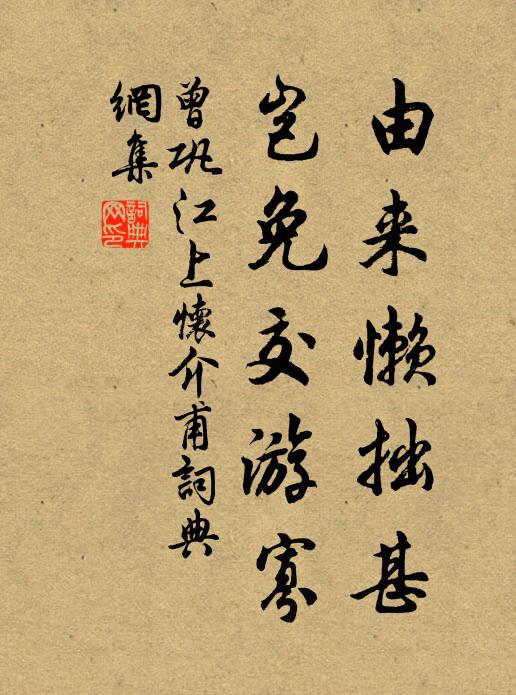 由来懒拙甚
岂免交游寡
曾巩江上懷介甫詞典
網集
詞典
网印